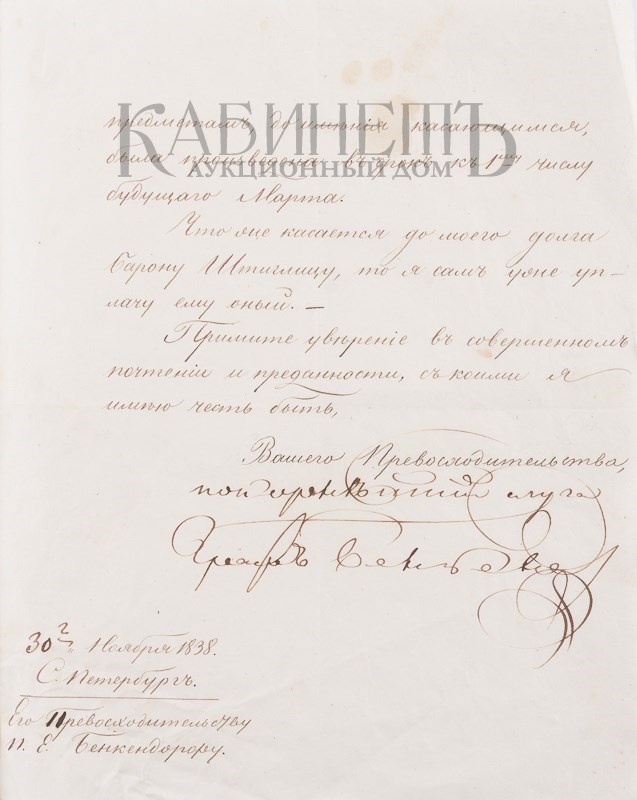 КАБИНЕТЪ
АУКЦИОННЫЙ ДОМ
предметамъ до имѣнія касающимся,
была произведена въ срокъ къ 1му числу
будущаго Марта.
Что же касается до моего долга
Барону Штиглицу, то я самъ уже уп-
лачу ему оный. —
Примите увѣреніе въ совершенномъ
почтеніи и преданности, съ коими я
имѣю честь быть,
Вашего Превосходительства,
покорнѣйший слуга
Графъ
30го Ноября 1838.
С. Петербургъ.
Его Превосходительству
П. Е. Бенкендорфу.